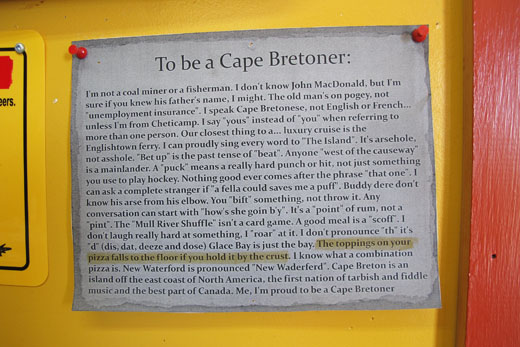 To be a Cape Bretoner:
I'm not a coal miner or a fisherman. I don't know John MacDonald, but I'm
sure if you knew his father's name, I might. The old man's on pogey, not
"unemployment insurance". I speak Cape Bretonese, not English or French...
unless I'm from Cheticamp. I say "yous" instead of "you" when referring to
more than one person. Our closest thing to a... luxury cruise is the
Englishtown ferry. I can proudly sing every word to "The Island". It's arsehole,
not asshole. "Bet up" is the past tense of "beat". Anyone "west of the causeway"
is a mainlander. A "puck" means a really hard punch or hit, not just something
you use to play hockey. Nothing good ever comes after the phrase "that one". I
can ask a complete stranger if "a fella could saves me a puff". Buddy dere don't
know his arse from his elbow. You "bift" something, not throw it. Any
conversation can start with "how's she goin b'y". It's a "point" of rum, not a
"pint". The "Mull River Shuffle" isn't a card game. A good meal is a "scoff". I
don't laugh really hard at something, I "roar" at it. I don't pronounce "th" it's
"d" (dis, dat, deeze and dose) Glace Bay is just the bay. The toppings on your
pizza falls to the floor if you hold it by the crust. I know what a combination
pizza is. New Waterford is pronounced "New Waderferd". Cape Breton is an
island off the east coast of North America, the first nation of tarbish and fiddle
music and the best part of Canada. Me, I'm proud to be a Cape Bretoner
eers.